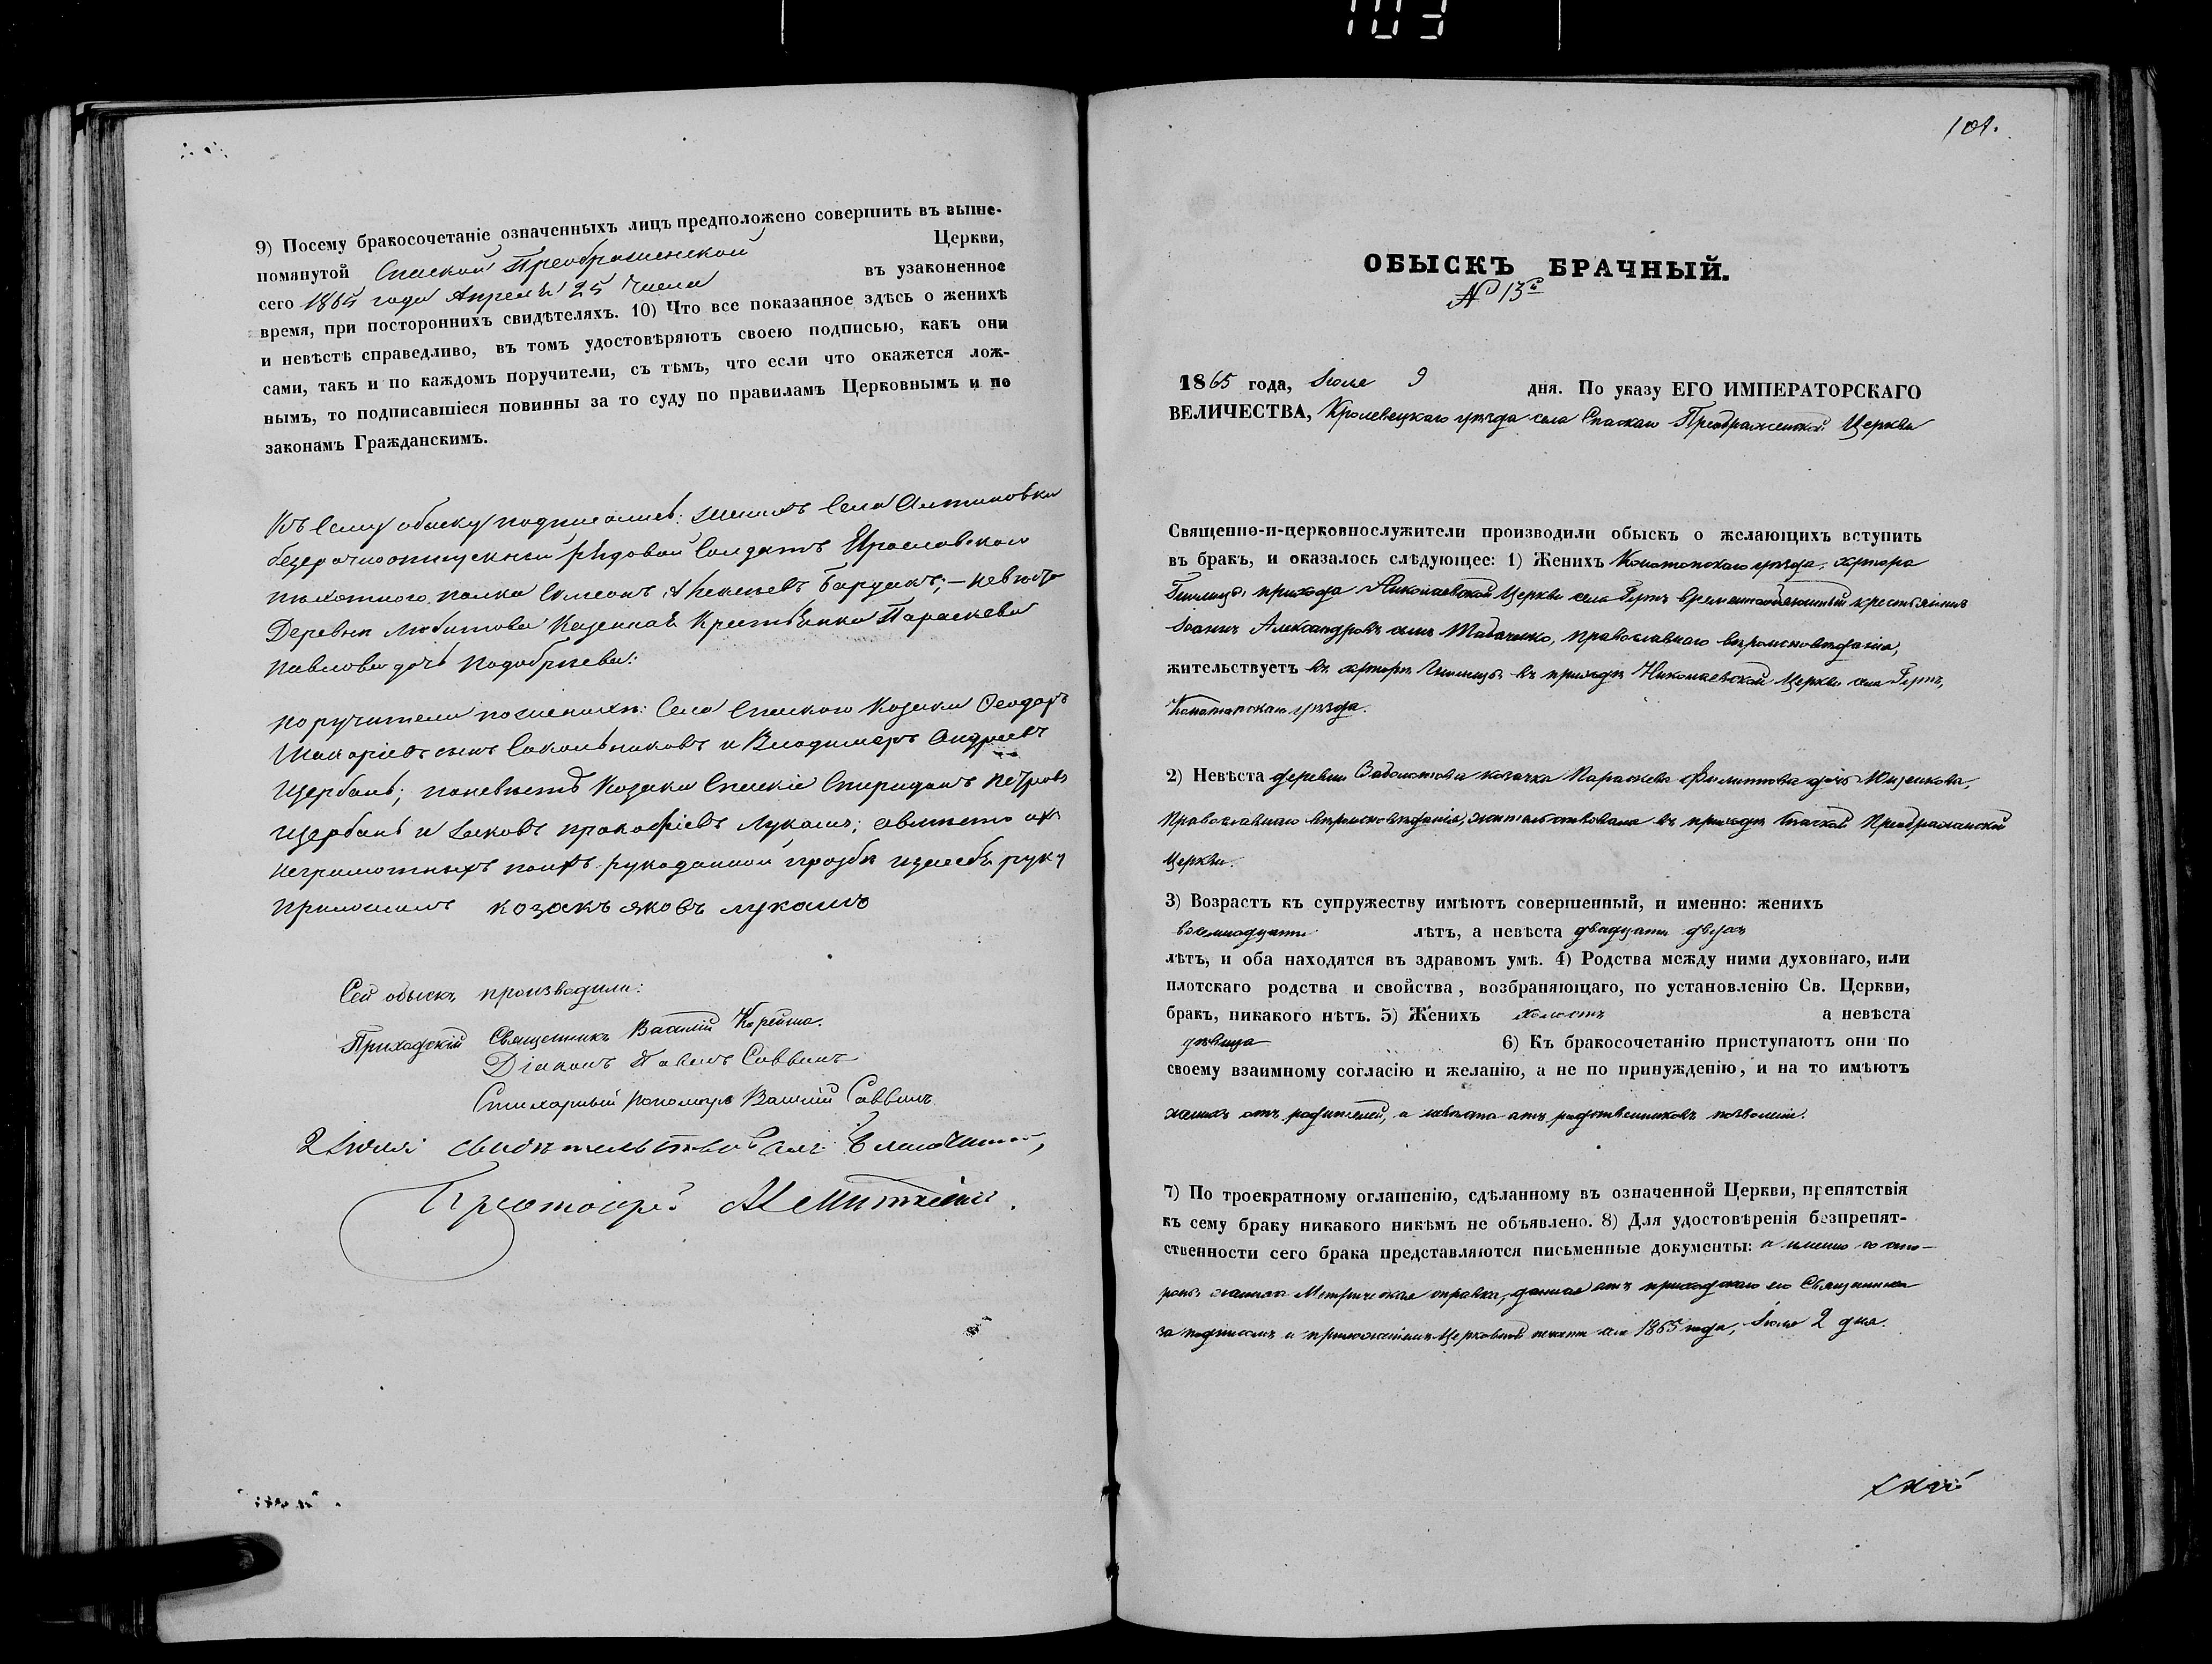 103
9) Посему бракосочетаніе означенныхъ лицъ предположено совершить въ выше-
помянутой Спаской Преображенской Церкви,
сего 1865 года Апреля 25 числа въ узаконенное
время, при постороннихъ свидѣтеляхъ. 10) Что все показанное здѣсь о женихѣ
и невѣстѣ справедливо, въ томъ удостовѣряютъ своею подписью, какъ они
сами, такъ и по каждомъ поручители, съ тѣмъ, что если что окажется лож-
нымъ, то подписавшіеся повинны за то суду по правиламъ Церковнымъ и по
законамъ Гражданскимъ.
Къ сему обыску подписались: женихъ Села Алтиновки
безсрочноотпускной рядовой Солдатъ Ярославского
пѣхотного полка Симеонъ Бардакъ; – невѣста
Деревни Любитова Казенная Крестьянка Параскева
Павлова дочь
поручители по женихѣ: Села Спаского Козаки Феодоръ
сынъ Сокольниковъ и Владимиръ Андреевъ
Щербань; по невѣстѣ Козаки Спаскіе Спиридонъ Петровъ
Щербань и Іаковъ Прокофіевъ Лукашъ; а вместо ихъ
неграмотныхъ по ихъ рукоданной прозбѣ и за себя руку
приложилъ козакъ яковъ лукашъ
Сей обыскъ производили:
Приходскій Священникъ Василій Корейша.
Діаконъ Павелъ Саввинъ
Стихарный пономарь Василій Саввинъ
2 Іюля свидѣтельствовалъ Благочинный,
Протоіерей
101.
ОБЫСКЪ БРАЧНЫЙ.
№ 13й
1865 года, Іюля 9 дня. По указу ЕГО ИМПЕРАТОРСКАГО
ВЕЛИЧЕСТВА, Кролевецкаго уѣзда села Спаскаго Преображенской Церкви
Священно-и-церковнослужители производили обыск о желающихъ вступить
въ бракъ, и оказалось слѣдующее: 1) Женихъ Конотопскаго уѣзда, хутора
прихода Николаевской Церкви села временнообязанный крестьянинъ
Іоаннъ Александровъ сынъ Ткаченко, православнаго вѣроисповѣданія,
жительствуетъ въ хуторѣ въ приходѣ Николаевской Церкви села
Конотопскаго уѣзда.
2) Невѣста деревни козачка Параскева Филиппова дочь
Православнаго вѣроисповѣданія, жительствовала въ приходѣ Спаской Преображенской
Церкви.
3) Возрастъ къ супружеству имѣютъ совершенный, и именно: женихъ
восемнадцати лѣтъ, а невѣста двадцати двухъ
лѣтъ, и оба находятся въ здравомъ умѣ. 4) Родства между ними духовнаго, или
плотскаго родства и свойства, возбраняющаго, по установленію Св. Церкви,
бракъ, никакого нѣтъ. 5) Женихъ холостъ а невѣста
дѣвица 6) Къ бракосочетанію приступаютъ они по
своему взаимному согласію и желанію, а не по принужденію, и на то имѣютъ
женихъ отъ родителей, а невѣста отъ родственниковъ позволеніе.
7) По троекратному оглашенію, сдѣланному въ означенной Церкви, препятствія
къ сему браку никакого никѣмъ не объявлено. 8) Для удостовѣренія безпрепят-
ственности сего брака представляются письменные документы: а именно со сто-
роны жениха Метрическая справка, данная отъ приходскаго его Священника
за подписомъ и приложеніемъ Церковной печати сего 1865 года, Іюля 2 дня.